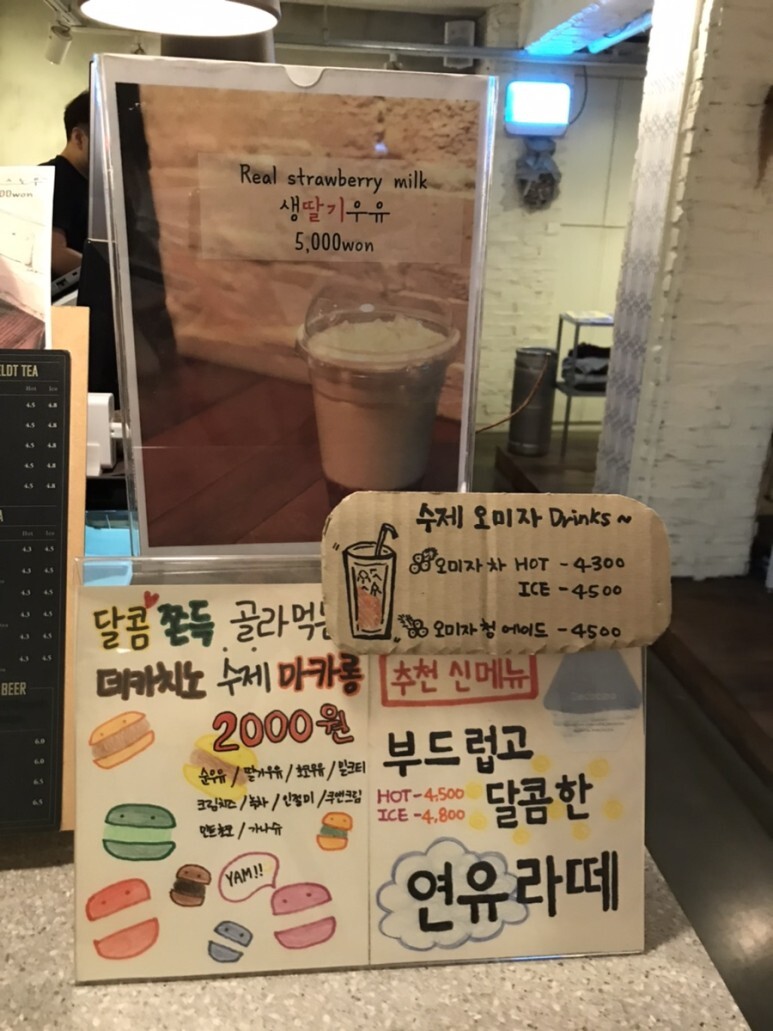 Real strawberry milk
생딸기우유
5,000won
00won
수제 오미자 Drinks~
오미자차 HOT - 4300
ICE - 4500
오미자청 에이드 - 4500
달콤 쫀득 골라먹는
데카치노 수제 마카롱
2000원
순우유 / 딸기우유 / 초코우유 / 밀크티
크림치즈 / 녹차 / 인절미 / 쿠앤크림
민트초코 / 가나슈
YAM!!
추천 신메뉴
부드럽고
HOT - 4,500
달콤한
ICE - 4,800
연유라떼
LDT TEA
Hot Ice
4.5 4.8
4.5 4.8
4.5 4.8
4.5 4.8
Hot Ice
4.3 4.5
4.3 4.5
4.3 4.5
4.3 4.5
4.3 4.5
BEER
6.0
6.0
6.5
6.5